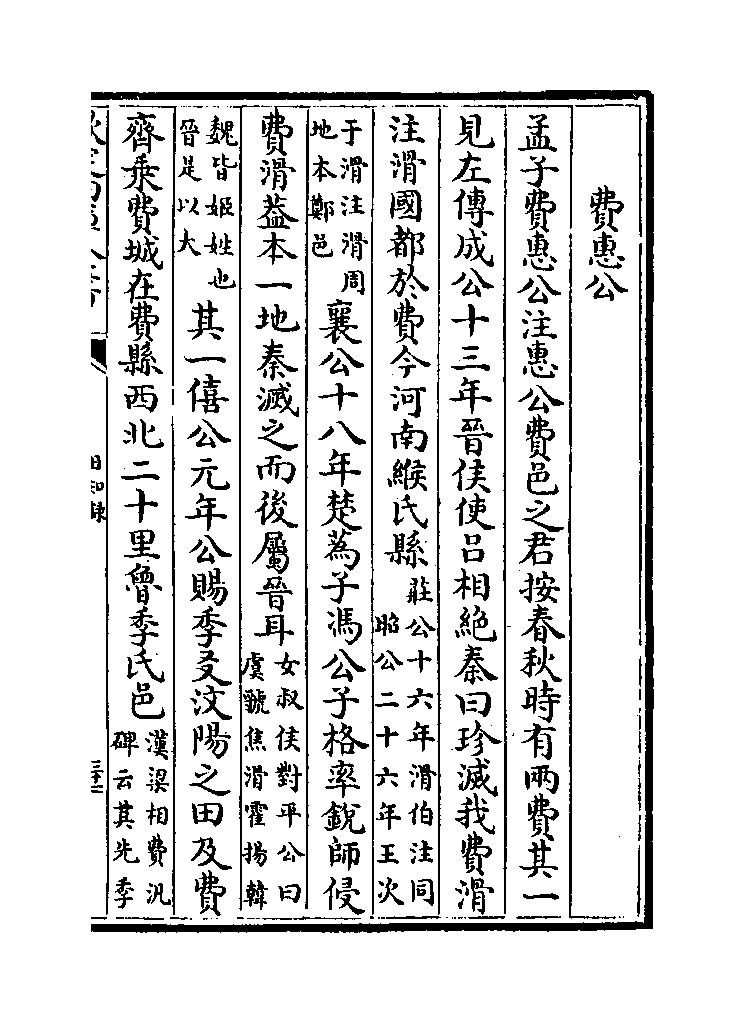 費惠公
孟子費惠公注惠公費邑之君按春秋時有兩費其一
見左傳成公十三年晉侯使吕相絶秦曰殄滅我費滑
注滑國都於費今河南緱氏縣
莊公十六年滑伯注同
昭公二十六年王次
于滑注滑周
地本鄭邑
襄公十八年楚蒍子馮公子格率銳師侵
費滑葢本一地秦滅之而後屬晉耳
女叔侯對平公曰
虞虢焦滑霍揚韓
魏皆姬姓也
晉是以大
其一僖公元年公賜季友汶陽之田及費
齊乗費城在費縣西北二十里魯季氏邑
漢梁相費汎
碑云其先季
日知録